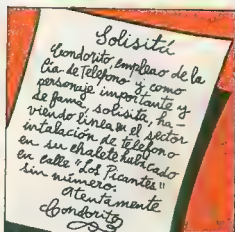 Solisitú
Condorito, empleao de la
Cía de Teléfono y como
personaje importante y
de fama, solisita, ha-
viendo linea en el sector
intalación de teléfono
en su chalete hubicado
en calle "Los Picantes"
sin número.
Atentamente
Condorito